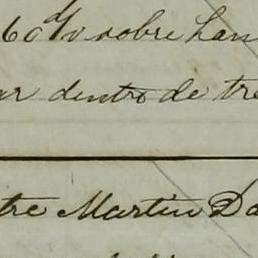 60 d/v sobre Lan
ar dentro de tre
tre Martin Da